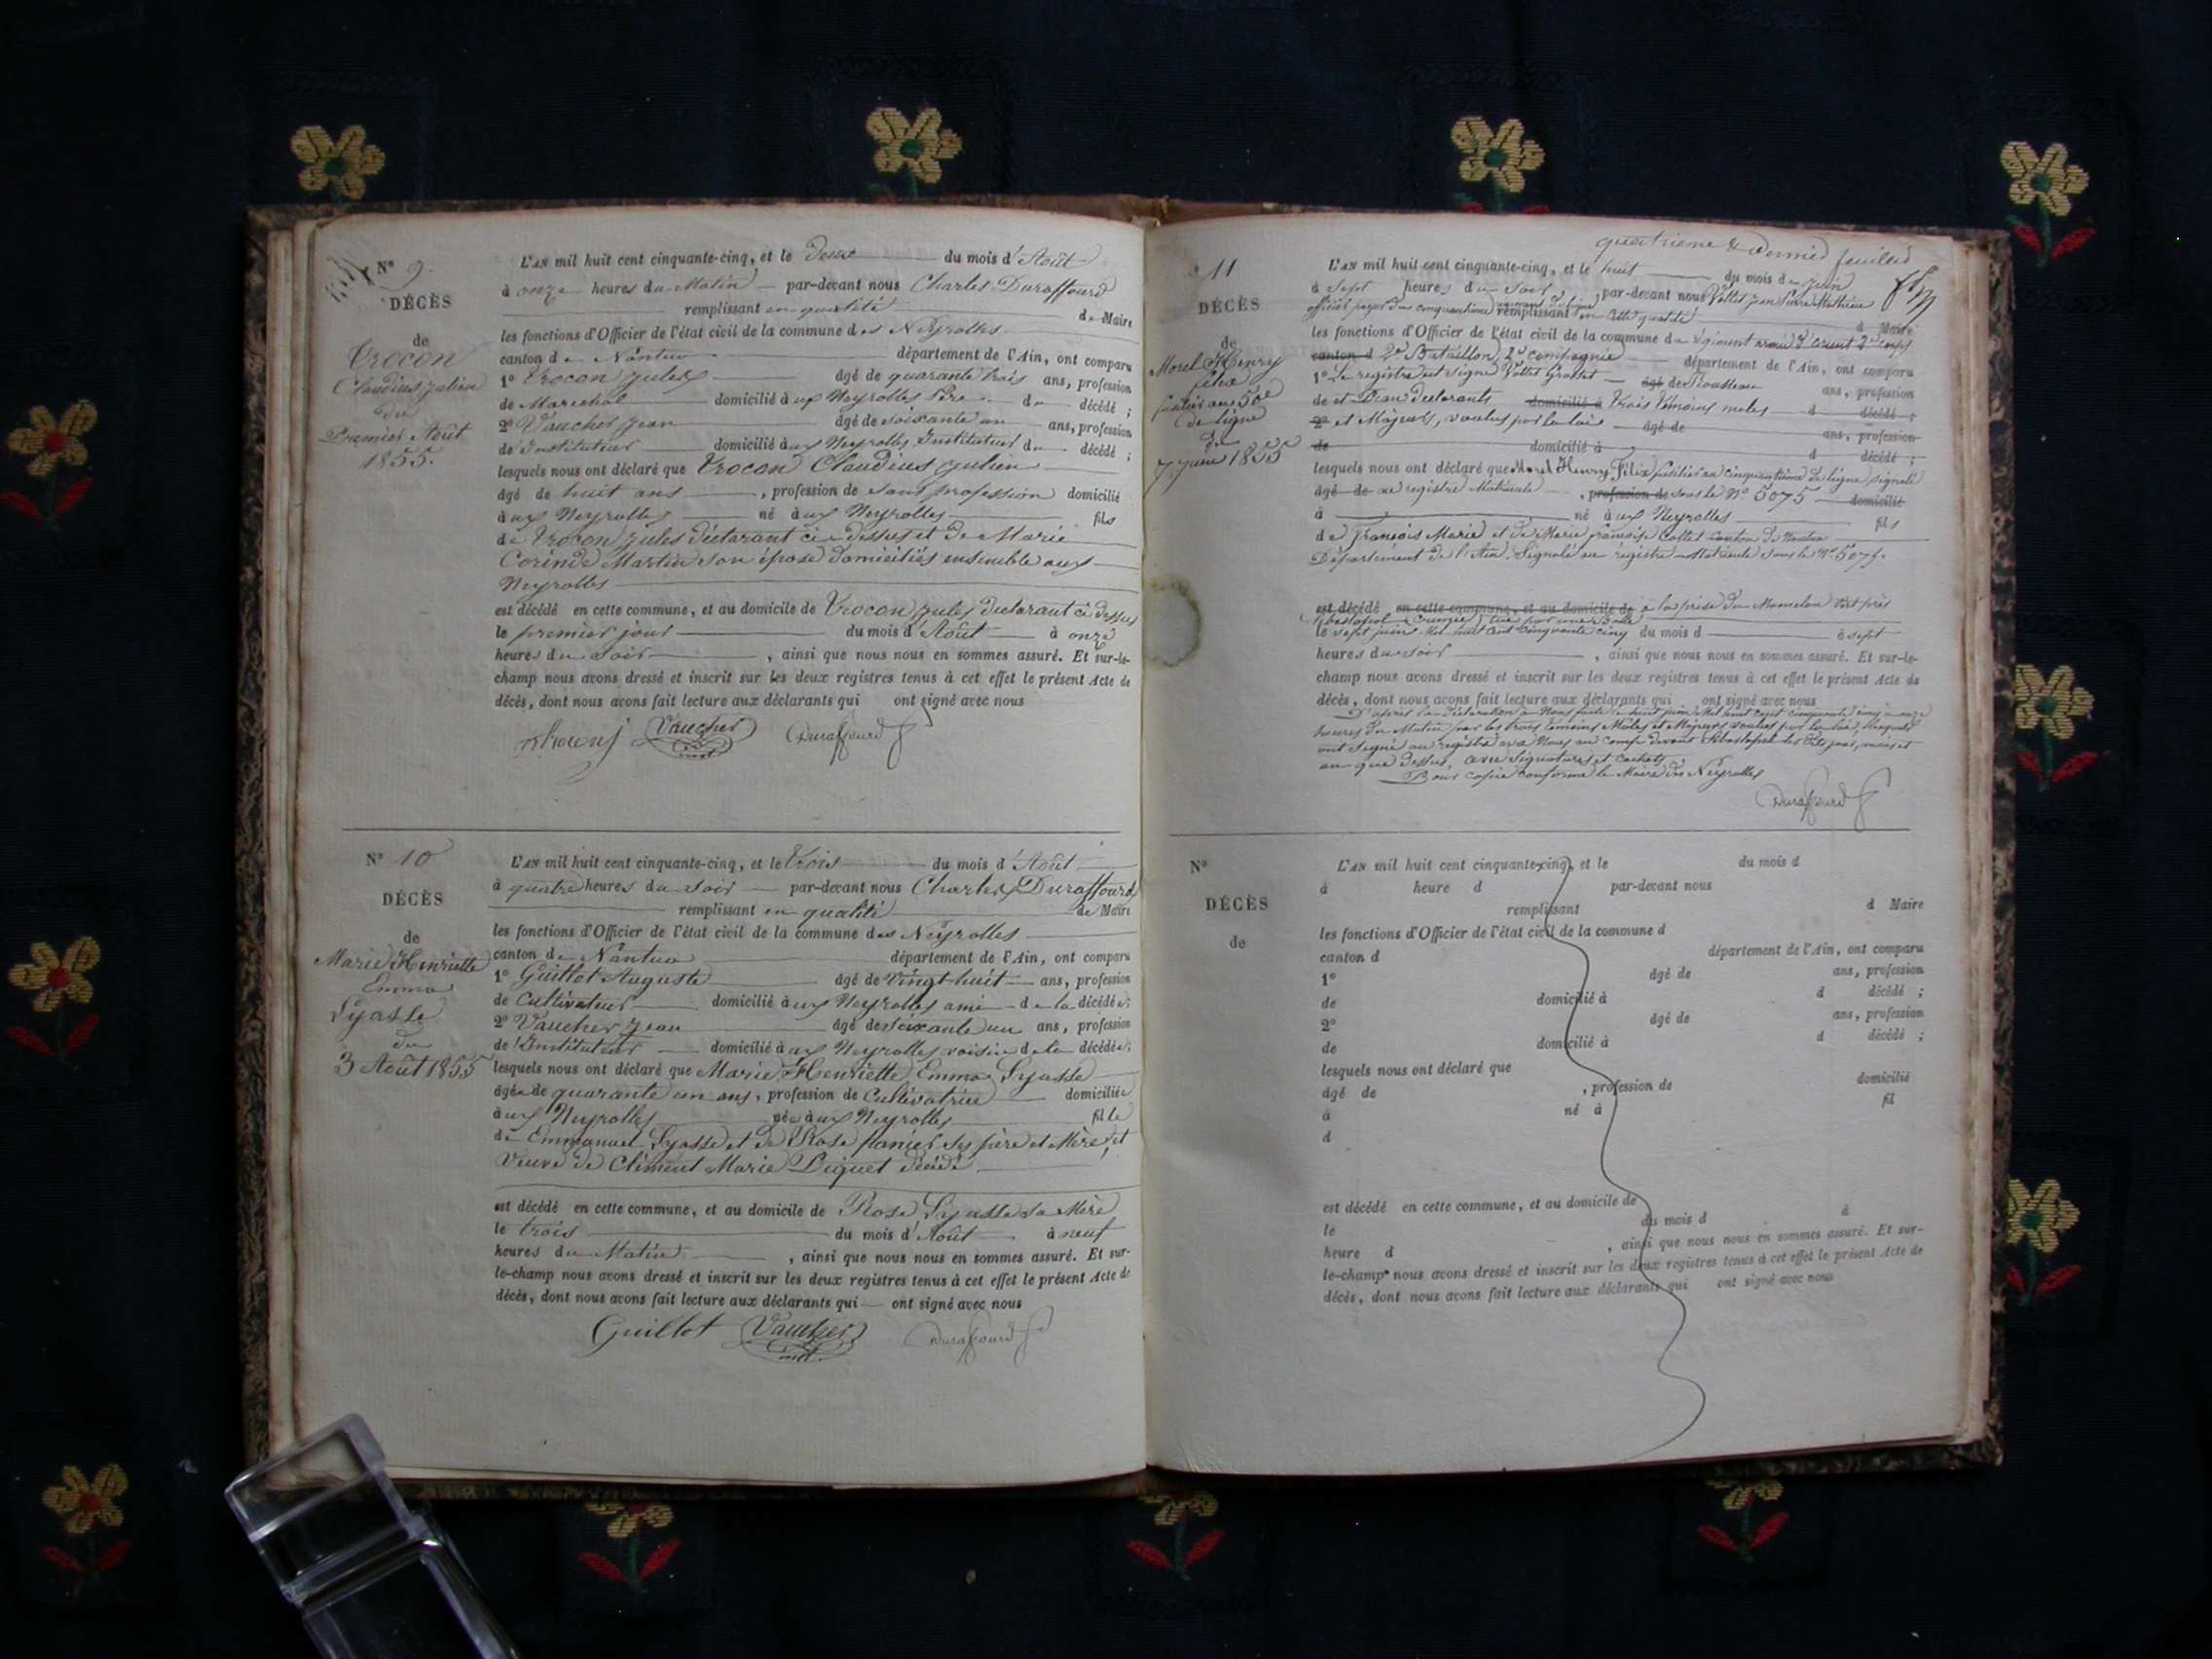 N° 9.
DÉCÈS
de
Trocon
Claudius Julien
du
Premier Août
1855.
L'AN mil huit cent cinquante-cinq, et le Deux du mois d'Août
à onze heures du Matin par-devant nous Charles Duraffourd
remplissant en qualité de Maire
les fonctions d'Officier de l'état civil de la commune des Neyrolles
canton de Nantua département de l'Ain, ont comparu
1° Trocon Jules âgé de quarante trois ans, profession
de Maréchal domicilié aux Neyrolles Père du décédé ;
2° Vaucher Jean âgé de soixante un ans, profession
de Instituteur domicilié aux Neyrolles Instituteur du décédé ;
lesquels nous ont déclaré que Trocon Claudius Julien
âgé de huit ans , profession de sans profession domicilié
aux Neyrolles né aux Neyrolles fils
de Trocon Jules déclarant ci-dessus et de Marie
Corinde Martin son épose domiciliés ensemble aux
Neyrolles
est décédé en cette commune, et au domicile de Trocon Jules déclarant ci dessus
le premier jour du mois d'Août à onze
heures du soir , ainsi que nous nous en sommes assuré. Et sur-le-
champ nous avons dressé et inscrit sur les deux registres tenus à cet effet le présent Acte de
décès, dont nous avons fait lecture aux déclarants qui ont signé avec nous
Vaucher Duraffourd
N° 10
DÉCÈS
de
Marie Henriette
Emma
Lyasse
du
3 Août 1855
L'AN mil huit cent cinquante-cinq, et le trois du mois d'Août
à quatre heures du soir par-devant nous Charles Duraffourd
remplissant en qualité de Maire
les fonctions d'Officier de l'état civil de la commune des Neyrolles
canton de Nantua département de l'Ain, ont comparu
1° Guillot Auguste âgé de vingt-huit ans, profession
de Cultivateur domicilié aux Neyrolles ami de la décédée;
2° Vaucher Jean âgé de soixante un ans, profession
de Instituteur domicilié aux Neyrolles voisin de la décédée;
lesquels nous ont déclaré que Marie Henriette Emma Lyasse
âgée de quarante un ans, profession de Cultivatrice domiciliée
aux Neyrolles née aux Neyrolles fille
de Emmanuel Lyasse et de Rose panier ses père et Mère, et
veuve de Clément Marie Piquet décédé
est décédé en cette commune, et au domicile de Rose Lyasse sa Mère
le trois du mois d'Août à neuf
heures du Matin , ainsi que nous nous en sommes assuré. Et sur-
le-champ nous avons dressé et inscrit sur les deux registres tenus à cet effet le présent Acte de
décès, dont nous avons fait lecture aux déclarants qui ont signé avec nous
Guillot Vaucher Duraffourd
quatrième & dernier feuillet
11
DÉCÈS
de
Morel Henry
félix
fusilier au 50e
de ligne
du
7 juin 1855
L'AN mil huit cent cinquante-cinq, et le huit du mois de juin
à sept heures du soir, par-devant nous Vollet Jean Pierre Mathieu
officier payeur du cinquantième régiment de ligne remplissant en cette qualité d Maire
les fonctions d'Officier de l'état civil de la commune de régiment armée d'orient 2e corps
canton d 2e Bataillon, 2e compagnie département de l'Ain, ont comparu
1° Le registre est signé Vollet Grosset âgé de Rousseau ans, profession
de et Dian déclarants domicilié à trois témoins males d décédé ;
2° et Majeurs, voulus par la loi âgé de ans, profession
de domicilié à d décédé ;
lesquels nous ont déclaré que Morel Henry Félix fusilier au cinquantième de ligne signalé
âgé de au registre Matricule , profession de sous le N° 5075 domicilié
à né aux Neyrolles fils
de François Marie et de Marie françoise Collet canton de Nantua
Département de l'Ain. Signalé au registre Matricule sous le N° 5075.
est décédé en cette commune, et au domicile de à la prise du Mamelon vert près
Sébastopol (Crimée) tué par une Balle
le sept juin Mil huit cent cinquante cinq du mois d à sept
heures du soir , ainsi que nous nous en sommes assuré. Et sur-le-
champ nous avons dressé et inscrit sur les deux registres tenus à cet effet le présent Acte de
décès, dont nous avons fait lecture aux déclarants qui ont signé avec nous
D'après la déclaration à Nous faite le huit juin Mil huit cent cinquante cinq à onze
heures du Matin par les trois témoins Males et Majeurs voulus par la loi, lesquels
ont signé au registre avec Nous au camp devant Sébastopol les jour, mois et
an que dessus, avec signatures et cachets.
Pour copie conforme le Maire des Neyrolles
Duraffourd
N°
DÉCÈS
de
L'AN mil huit cent cinquante-cinq, et le du mois d
à heure d par-devant nous
remplissant d Maire
les fonctions d'Officier de l'état civil de la commune d
canton d département de l'Ain, ont comparu
1° âgé de ans, profession
de domicilié à d décédé ;
2° âgé de ans, profession
de domicilié à d décédé ;
lesquels nous ont déclaré que
âgé de , profession de domicilié
à né à fil
d
est décédé en cette commune, et au domicile de
le du mois d à
heure d , ainsi que nous nous en sommes assuré. Et sur-
le-champ nous avons dressé et inscrit sur les deux registres tenus à cet effet le présent Acte de
décès, dont nous avons fait lecture aux déclarants qui ont signé avec nous